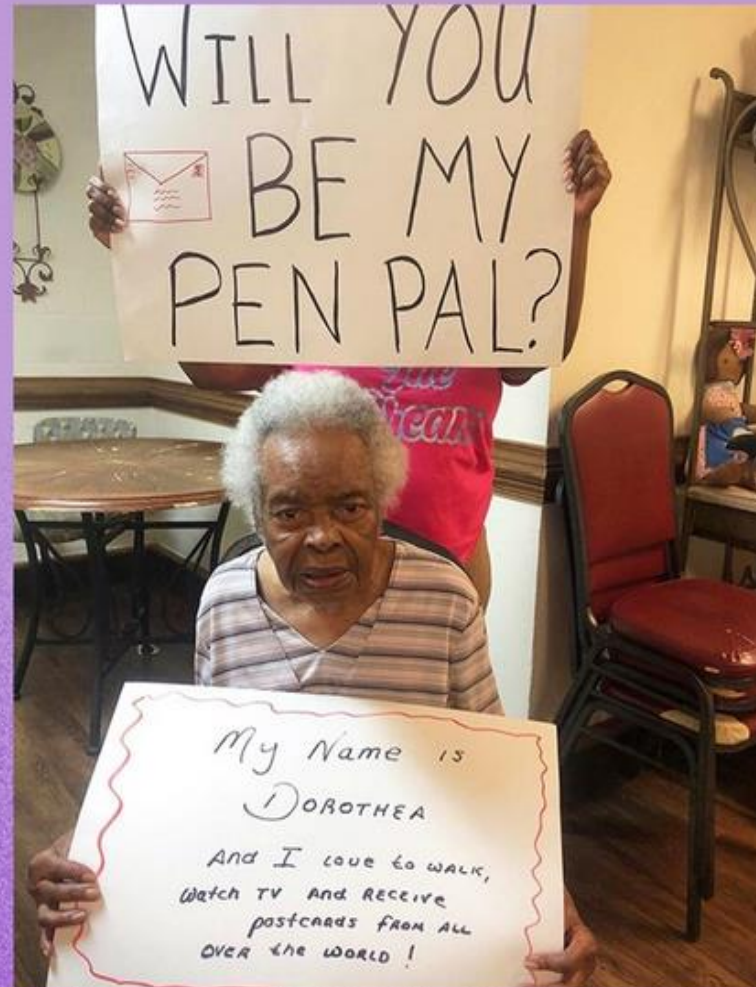 WILL YOU
BE MY
PEN PAL?
My Name is
DOROTHEA
And I love to walk,
watch TV and Receive
postcards from all
over the world!